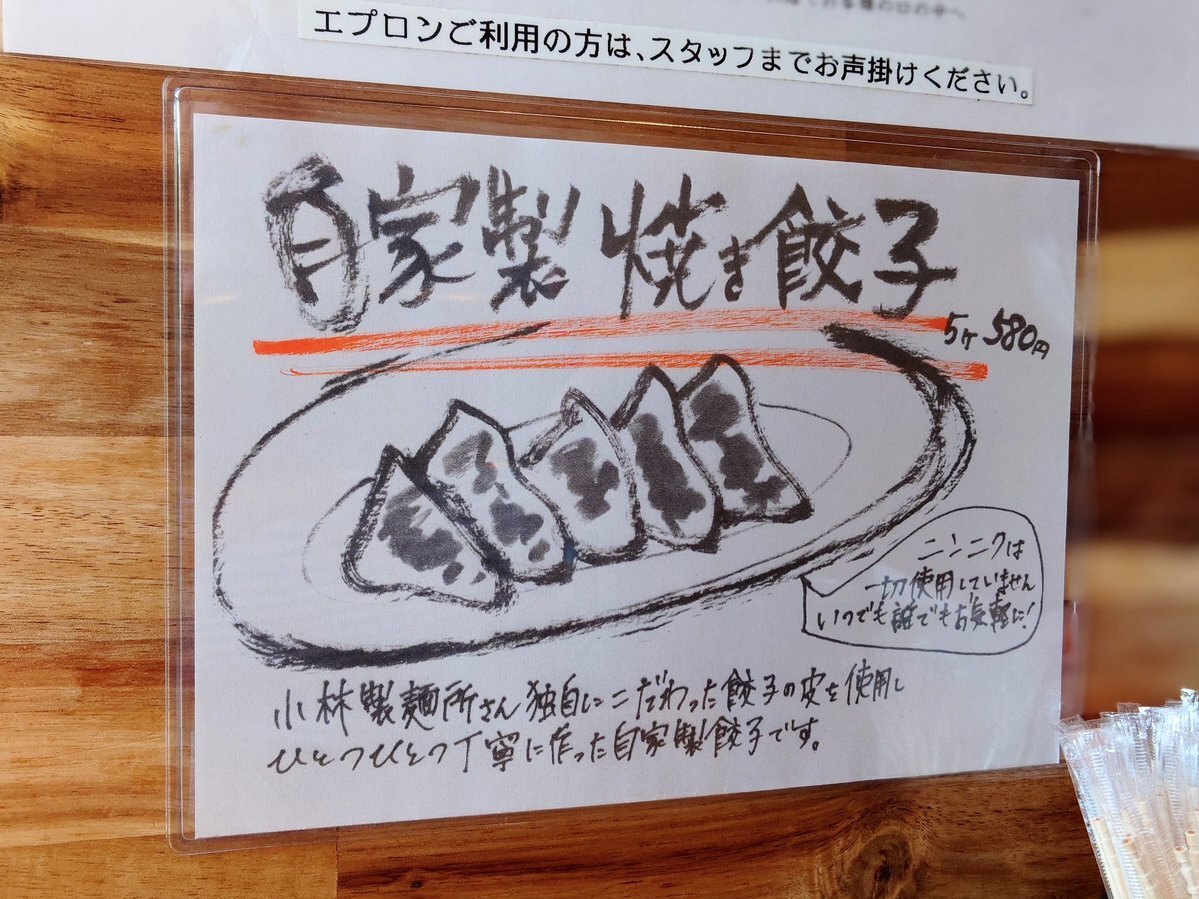 エプロンご利用の方は、スタッフまでお声掛けください。
自家製 焼き餃子
5ケ 580円
ニンニクは
一切使用していません
いつでも誰でもお気軽に!
小林製麺所さん独自にこだわった餃子の皮を使用し
ひとつひとつ丁寧に作った自家製餃子です。